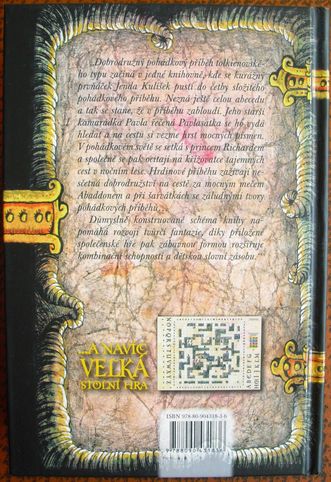 „Dobrodružný pohádkový příběh tolkienovské-
ho typu začíná v jedné knihovně, kde se kurážný
prvňáček Jenda Kulíšek pustí do četby složitého
pohádkového příběhu. Nezná ještě celou abecedu
a tak se stane, že v příběhu zabloudí. Jeho starší
kamarádka Pavla řečená Poplavátka se ho vydá
hledat a na cestu si vezme hrst mocných písmen.
V pohádkovém světě se setká s princem Richardem
a společně se pak ocitají na křižovatce tajemných
cest v nočním lese. Hrdinové příběhu zažívají ne-
sčetná dobrodružství na cestě za mocným mečem
Abaddonem a při šarvátkách se záludnými tvory
pohádkových příběhů...
Důmyslně konstruované schéma knihy na-
pomáhá rozvoji tvůrčí fantazie, díky přiložené
společenské hře pak zábavnou formou rozšiřuje
kombinační schopnosti a dětskou slovní zásobu.“
...A NAVÍC
VELKÁ
STOLNÍ HRA
ISBN 978-80-904318-3-6